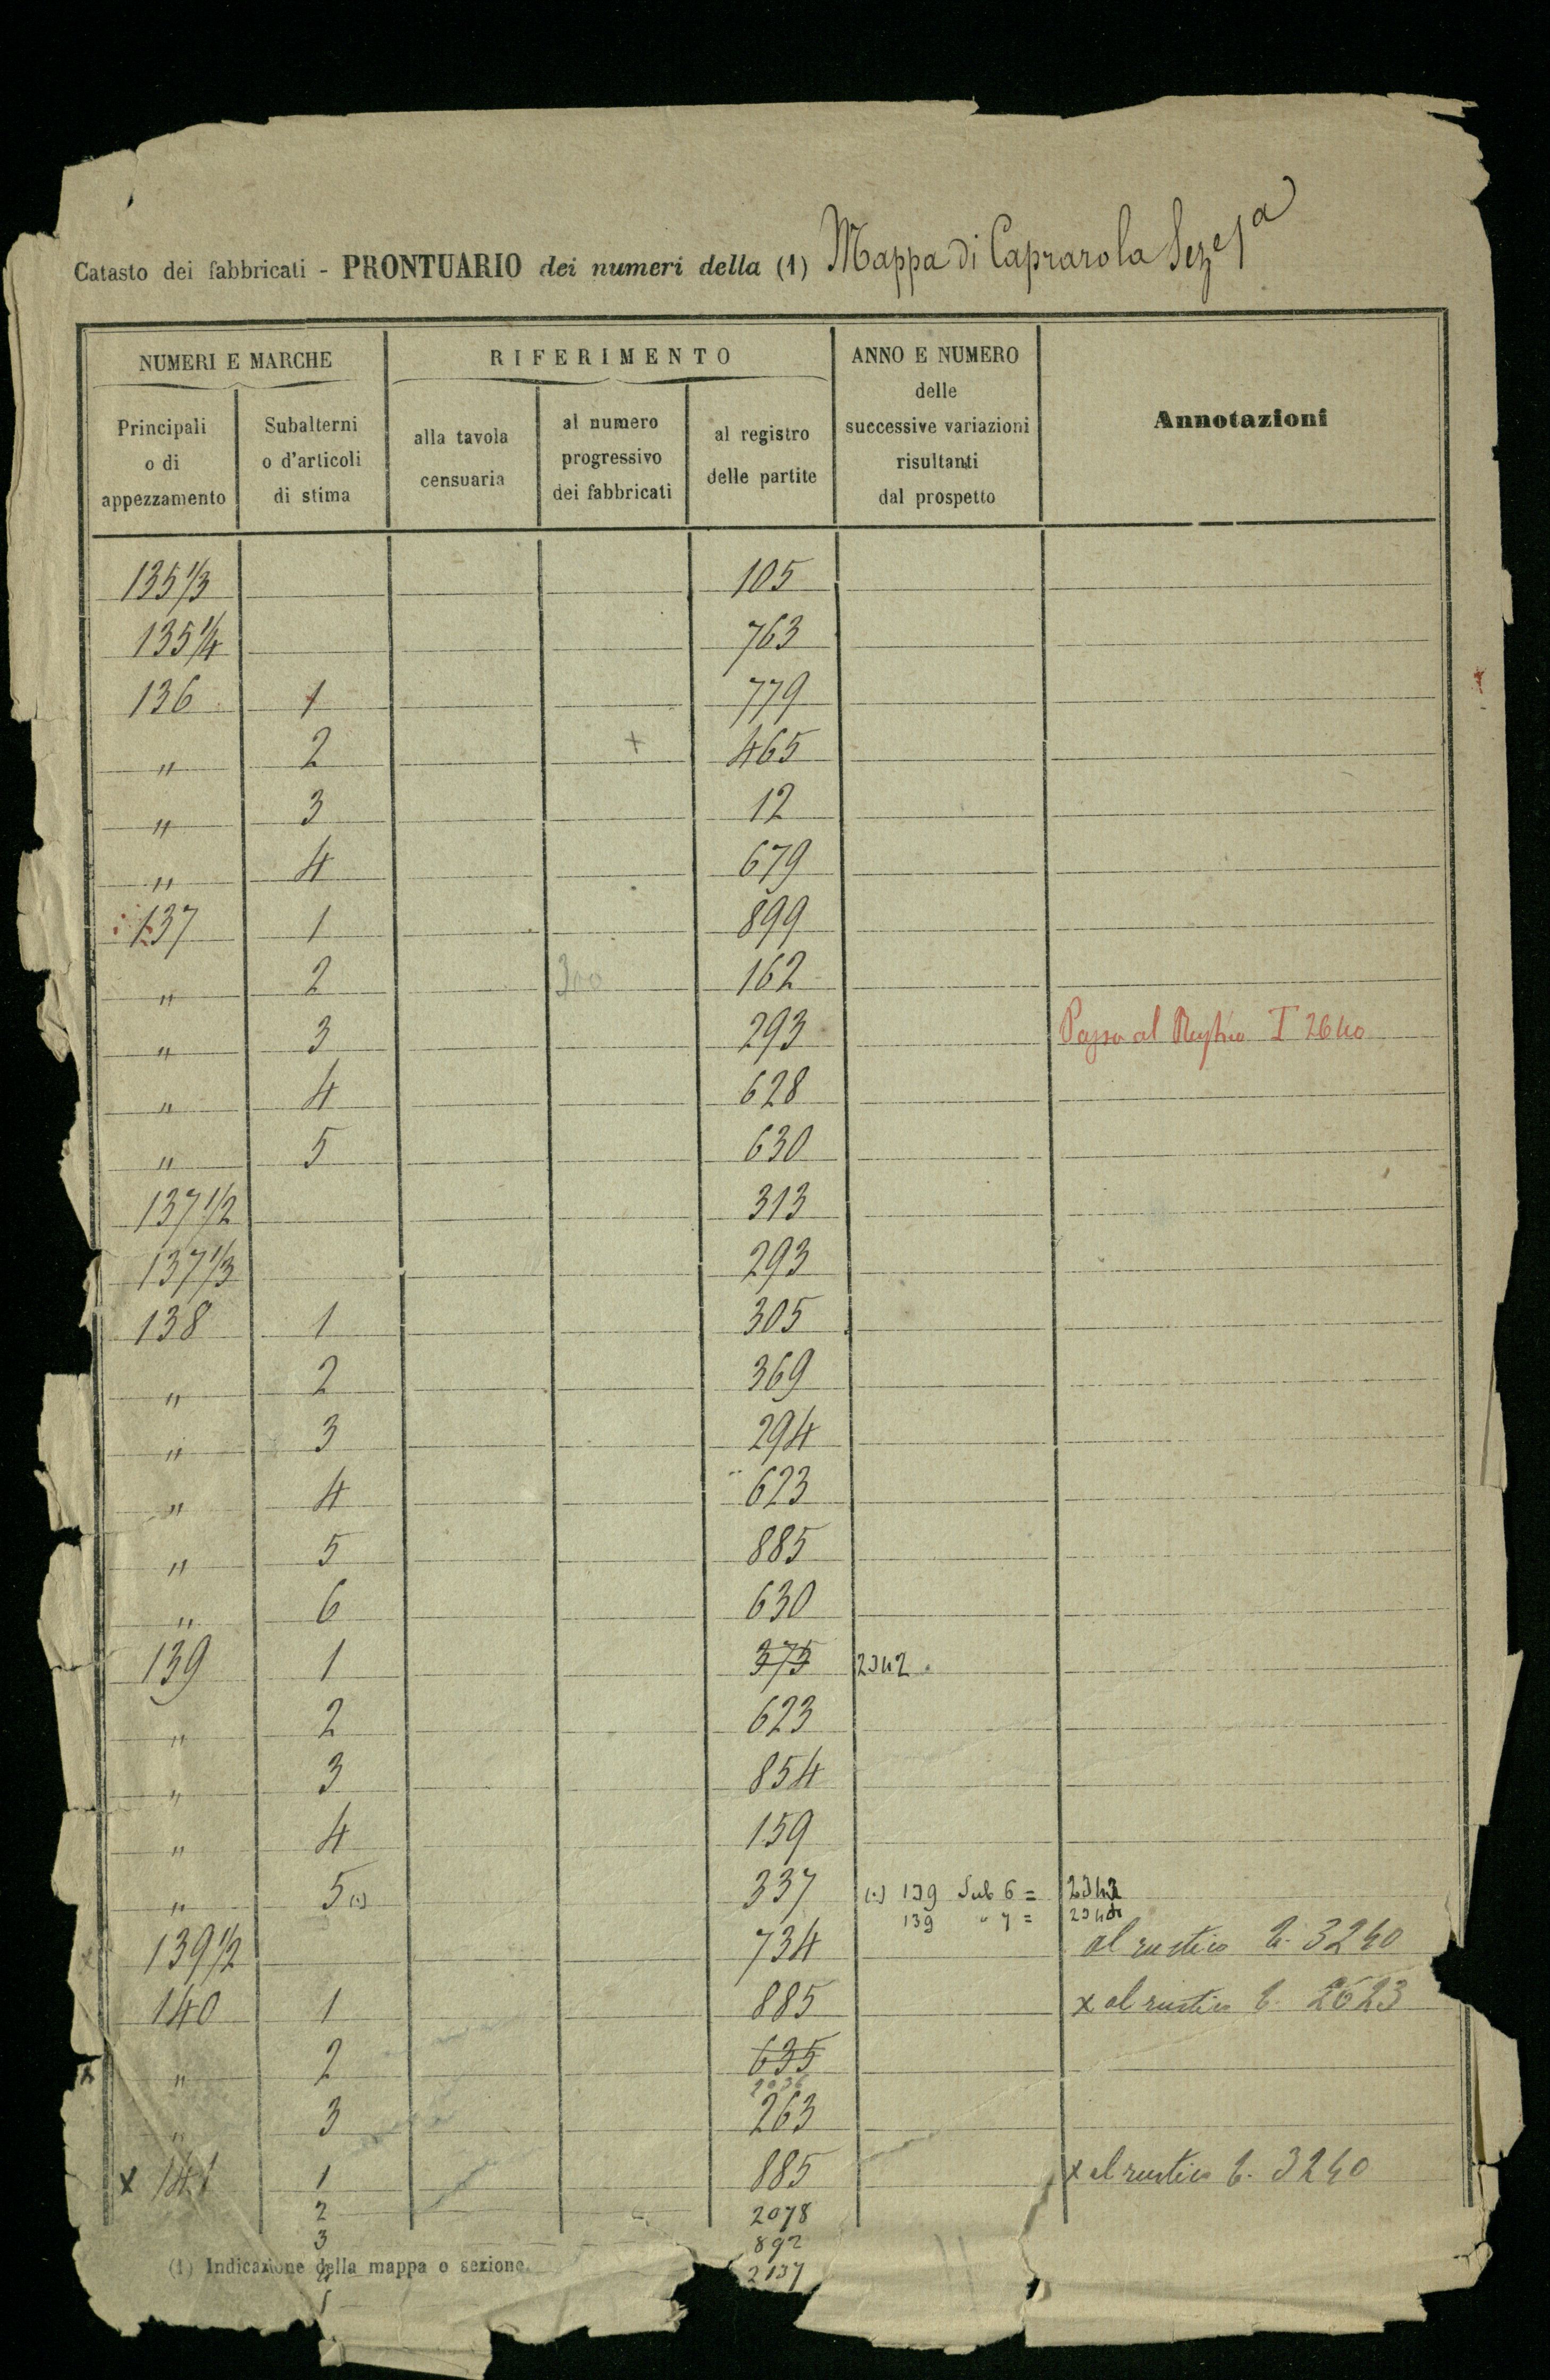 Catasto dei fabbricati - PRONTUARIO dei numeri della (1) Mappa di Caprarola Sez.e 1a
NUMERI E MARCHE
RIFERIMENTO
ANNO E NUMERO
delle
successive variazioni
risultanti
dal prospetto
Annotazioni
Principali
o di
appezzamento
Subalterni
o d'articoli
di stima
alla tavola
censuaria
al numero
progressivo
dei fabbricati
al registro
delle partite
135 1/3 105
135 1/4 763
136 1 779
" 2 + 465
" 3 12
" 4 679
137 1 899
" 2 300 162
" 3 293 Passa al T 2640
" 4 628
" 5 630
137 1/2 313
137 1/3 293
138 1 305
" 2 369
" 3 294
" 4 623
" 5 885
" 6 630
139 1 375 2342
" 2 623
" 3 854
" 4 159
" 5 (1) 337 (1) 139 Sub 6 = 2343
139 " 7 =
139 1/2 734 al rustico t. 3240
140 1 885 x al rustico t. 2623
" 2 635
2036
" 3 263
x 141 1 885 x al rustico t. 3240
2 2078
3 892
4 2137
5
(1) Indicazione della mappa o sezione.